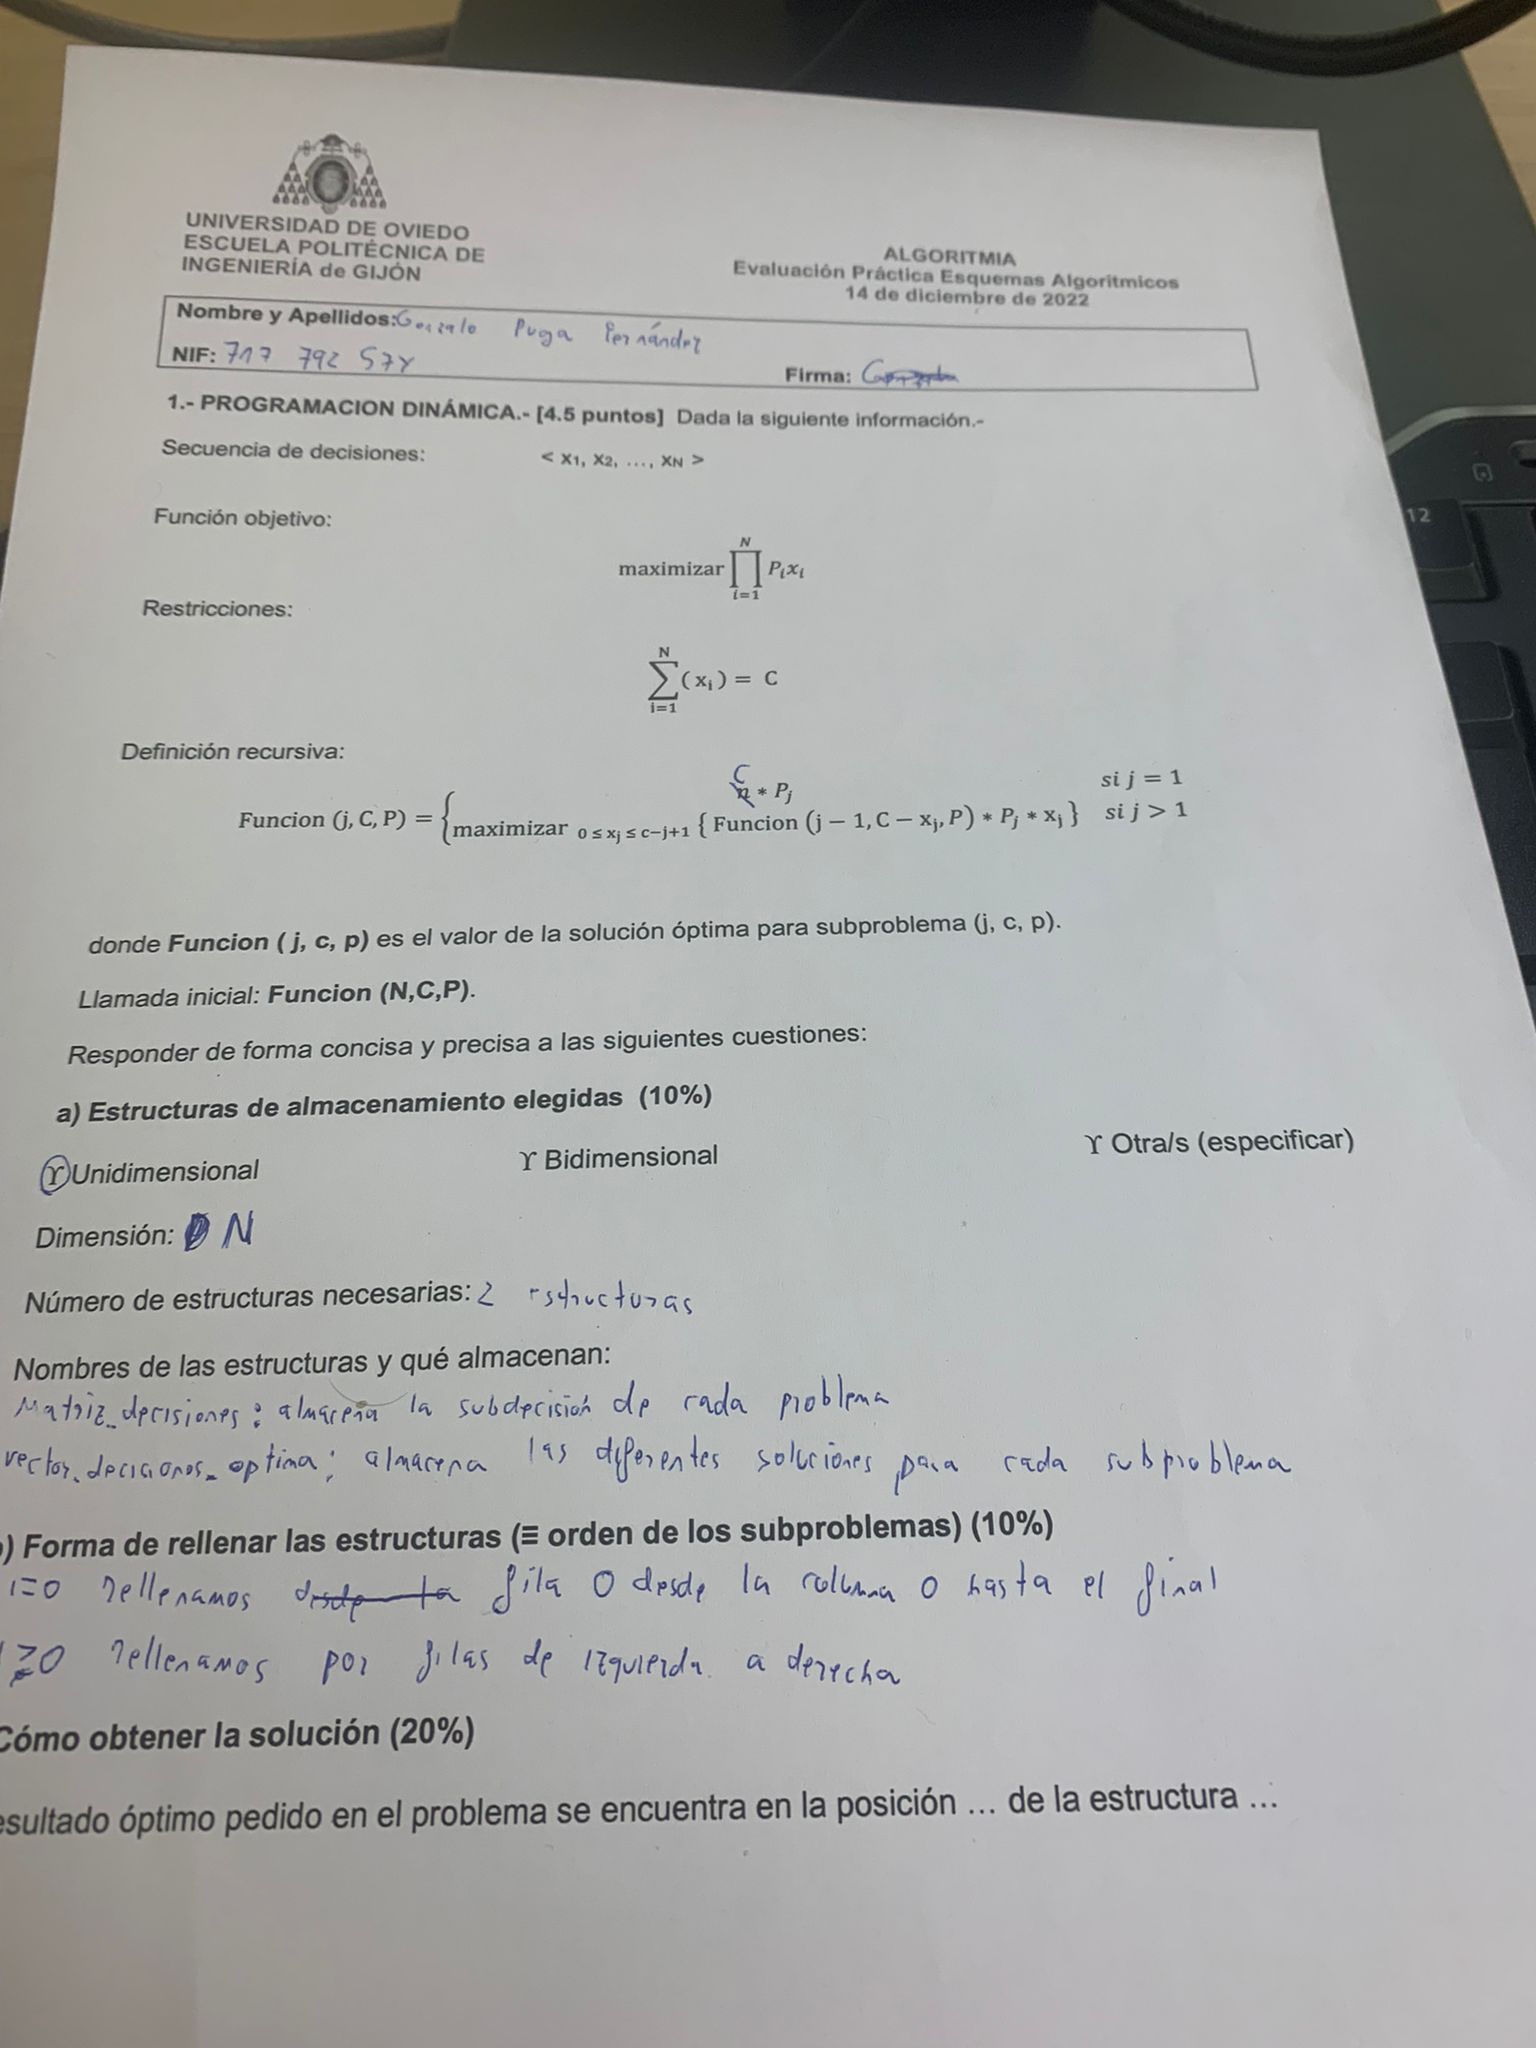 UNIVERSIDAD DE OVIEDO
ESCUELA POLITÉCNICA DE
INGENIERÍA de GIJÓN
ALGORITMIA
Evaluación Práctica Esquemas Algorítmicos
14 de diciembre de 2022
Nombre y Apellidos: Gonzalo Puga Fernández
NIF: 717 792 57Y
Firma:
1.- PROGRAMACION DINÁMICA.- [4.5 puntos] Dada la siguiente información.-
Secuencia de decisiones: < x1, x2, ..., xN >
Función objetivo:
maximizar ∏_{i=1}^{N} P_i x_i
Restricciones:
∑_{i=1}^{N} (x_i) = C
Definición recursiva:
C
Funcion (j, C, P) = { n * P_j si j = 1
maximizar 0 ≤ x_j ≤ c−j+1 { Funcion (j − 1, C − x_j, P) * P_j * x_j } si j > 1
donde Funcion ( j, c, p) es el valor de la solución óptima para subproblema (j, c, p).
Llamada inicial: Funcion (N,C,P).
Responder de forma concisa y precisa a las siguientes cuestiones:
a) Estructuras de almacenamiento elegidas (10%)
ϒ Unidimensional ϒ Bidimensional ϒ Otra/s (especificar)
Dimensión: N
Número de estructuras necesarias: 2 estructuras
Nombres de las estructuras y qué almacenan:
Matriz_decisiones: almacena la subdecisión de cada problema
vector_decisiones_optima: almacena las diferentes soluciones para cada subproblema
) Forma de rellenar las estructuras (≡ orden de los subproblemas) (10%)
i=0 rellenamos desde la fila 0 desde la columna 0 hasta el final
≥0 rellenamos por filas de izquierda a derecha
Cómo obtener la solución (20%)
esultado óptimo pedido en el problema se encuentra en la posición ... de la estructura ...
12